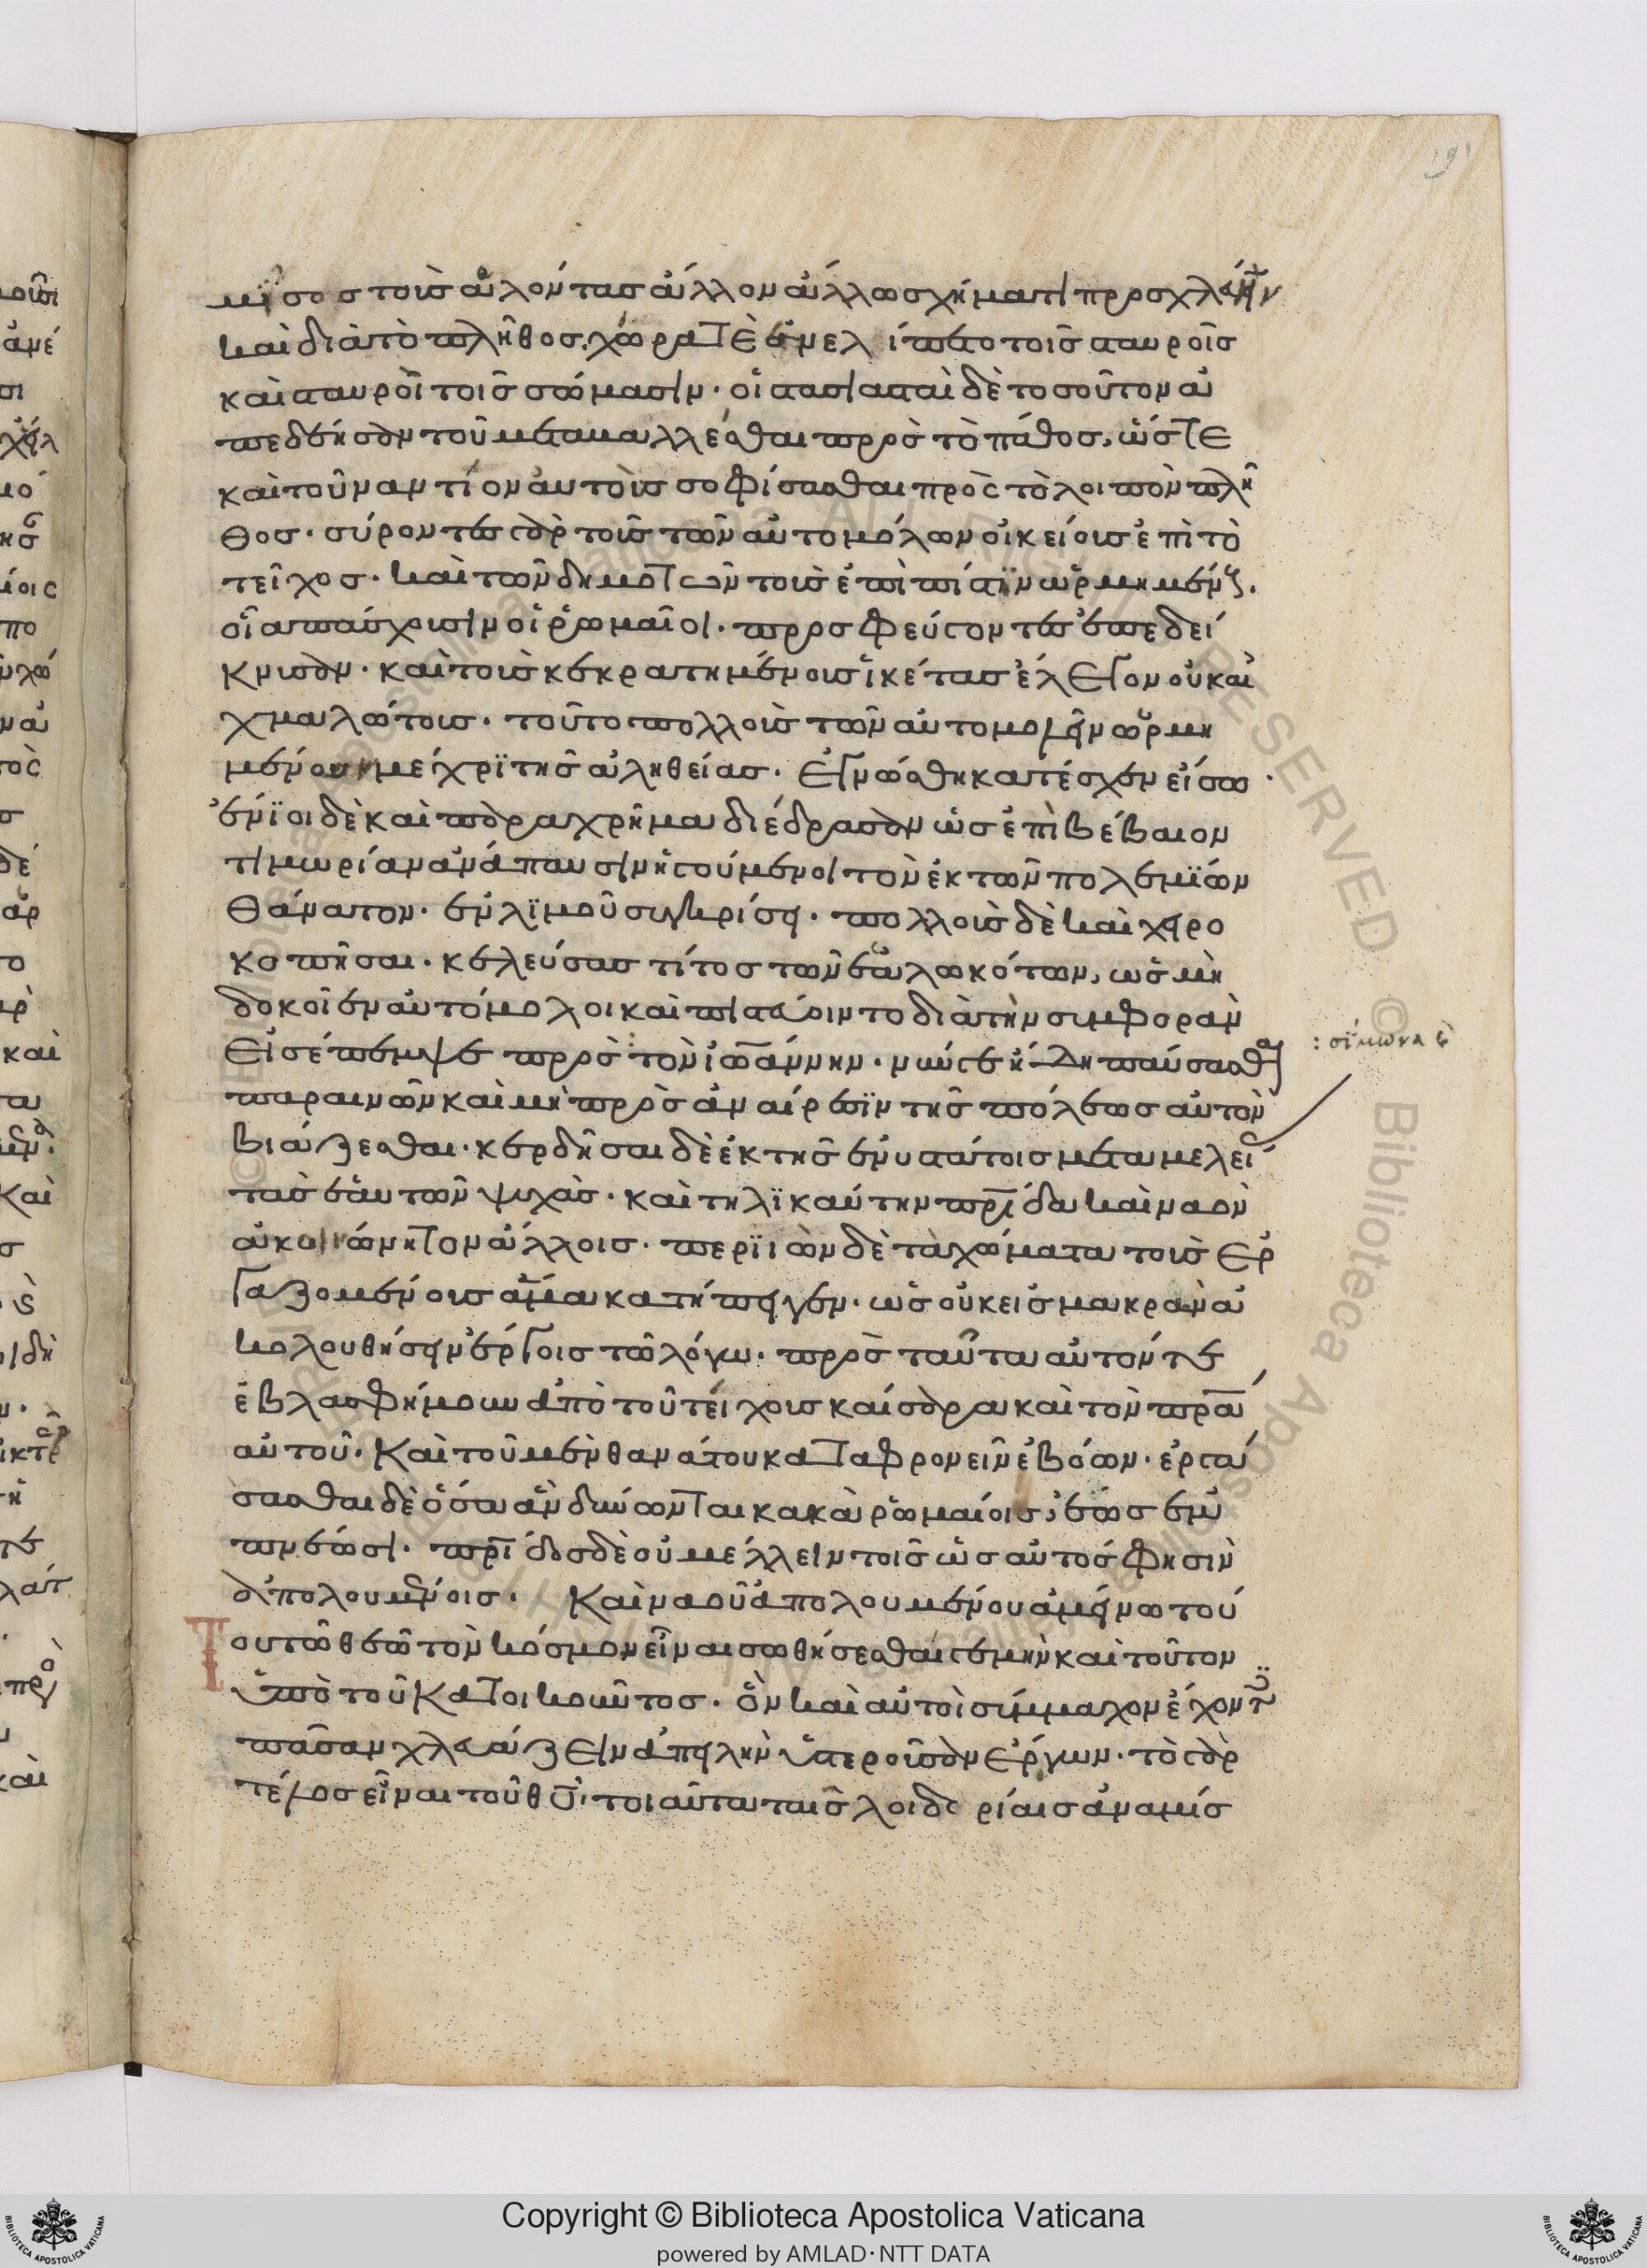 191
μῖσος τοὺς ἁλόντας ἄλλον ἄλλω σχήματι πρὸς χλεύην
καὶ διὰ τὸ πλῆθος, χώρα τὲ ἐνελίπετο τοῖς σταυροῖς
καὶ σταυροὶ τοῖς σώμασιν· οἱ στασιασταὶ δὲ τοσοῦτον ἀ
πεδέησαν τοῦ μεταβαλλέσθαι πρὸς τὸ πάθος, ὥστε
καὶ τοὐναντίον αὐτοὺς σοφίσασθαι πρὸς τὸ λοιπὸν πλῆ
θος· σύροντες γὰρ τοὺς τῶν αὐτομόλων οἰκείους ἐπὶ τὸ
τεῖχος· καὶ τῶν δημοτῶν τοὺς ἐπὶ πίστιν ὡρμημένους·
οἷα πάσχουσιν οἱ ῥωμαίοι· προσφεύγοντες ἐπεδεί
κνυσαν· καὶ τοὺς κεκρατημένους ἱκέτας ἔλεγον οὐκ αἰ
χμαλώτους· τοῦτο πολλοὺς τῶν αὐτομολεῖν ὡρμη
μένους μέχρι τῆς ἀληθείας· ἐγνώσθη κατέσχεν εἴσω·
ἔνιοι δὲ καὶ παραχρῆμα διέδρασαν ὡς ἐπὶ βέβαιον
τιμωρίαν ἀνάπαυσιν ἡγούμενοι τὸν ἐκ τῶν πολεμίων
θάνατον· ἐν λιμοῦ συγκρίσει· πολλοὺς δὲ καὶ χειρο
κοπῆσαι· κελεύσας τίτος τῶν ἑαλωκότων, ὡς μὴ
δοκοῖεν αὐτόμολοι καὶ πιστεύοιντο διὰ τὴν συμφορὰν
εἰσέπεμψε πρὸς τὸν ἰωάννην· νῦν γε ἤδη παύσασθαι
: σίμωνα καὶ
παραινῶν καὶ μὴ πρὸς ἀναίρεσιν τῆς πόλεως αὐτὸν
βιάζεσθαι· κερδῆσαι δὲ ἐκ τῆς ἐν ὑστάτοις μεταμελεί
τὰς ἑαυτῶν ψυχὰς· καὶ τηλικαύτην πρίδα καὶ ναὸν
ἀκοινώνητον ἄλλοις· περιιὼν δὲ τὰ χώματα τοὺς ἐρ
γαζομένους ἅμα κατήπειγεν· ὡς οὐκ εἰς μακρὰν ἀ
κολουθήσειν ἔργοις τῶ λόγω· πρὸς ταῦτα αὐτόν τε
ἐβλασφήμουν ἀπὸ τοῦ τείχους καίσαρα καὶ τὸν πρα
αὐτοῦ· Καὶ τοῦ μὲν θανάτου καταφρονεῖν ἐβόων· ἐργά
σασθαι δὲ ὅσα ἂν δύνωνται κακὰ ῥωμαίους, ἕως ἐμ
πνέωσι· πρίδος δὲ οὐ μέλλειν τοῖς ὡς αὐτός φησιν
ἀπολουμένοις· Καὶ ναοῦ ἀπολουμένου ἀμείνω τού
του τῶ θεῶ τὸν κόσμον εἶναι σωθήσεσθαί γε μὴν καὶ τοῦτον
ὑπὸ τοῦ κατοικοῦντος· ὃν καὶ αὐτοὶ σύμμαχον ἔχοντες
πᾶσαν χλευάζειν ἀπειλὴν ὑστεροῦσαν ἔργων· τὸ γὰρ
τέλος εἶναι τοῦ θῦ· τοιαῦτα ταῖς λοιδορίαις ἀναμίς